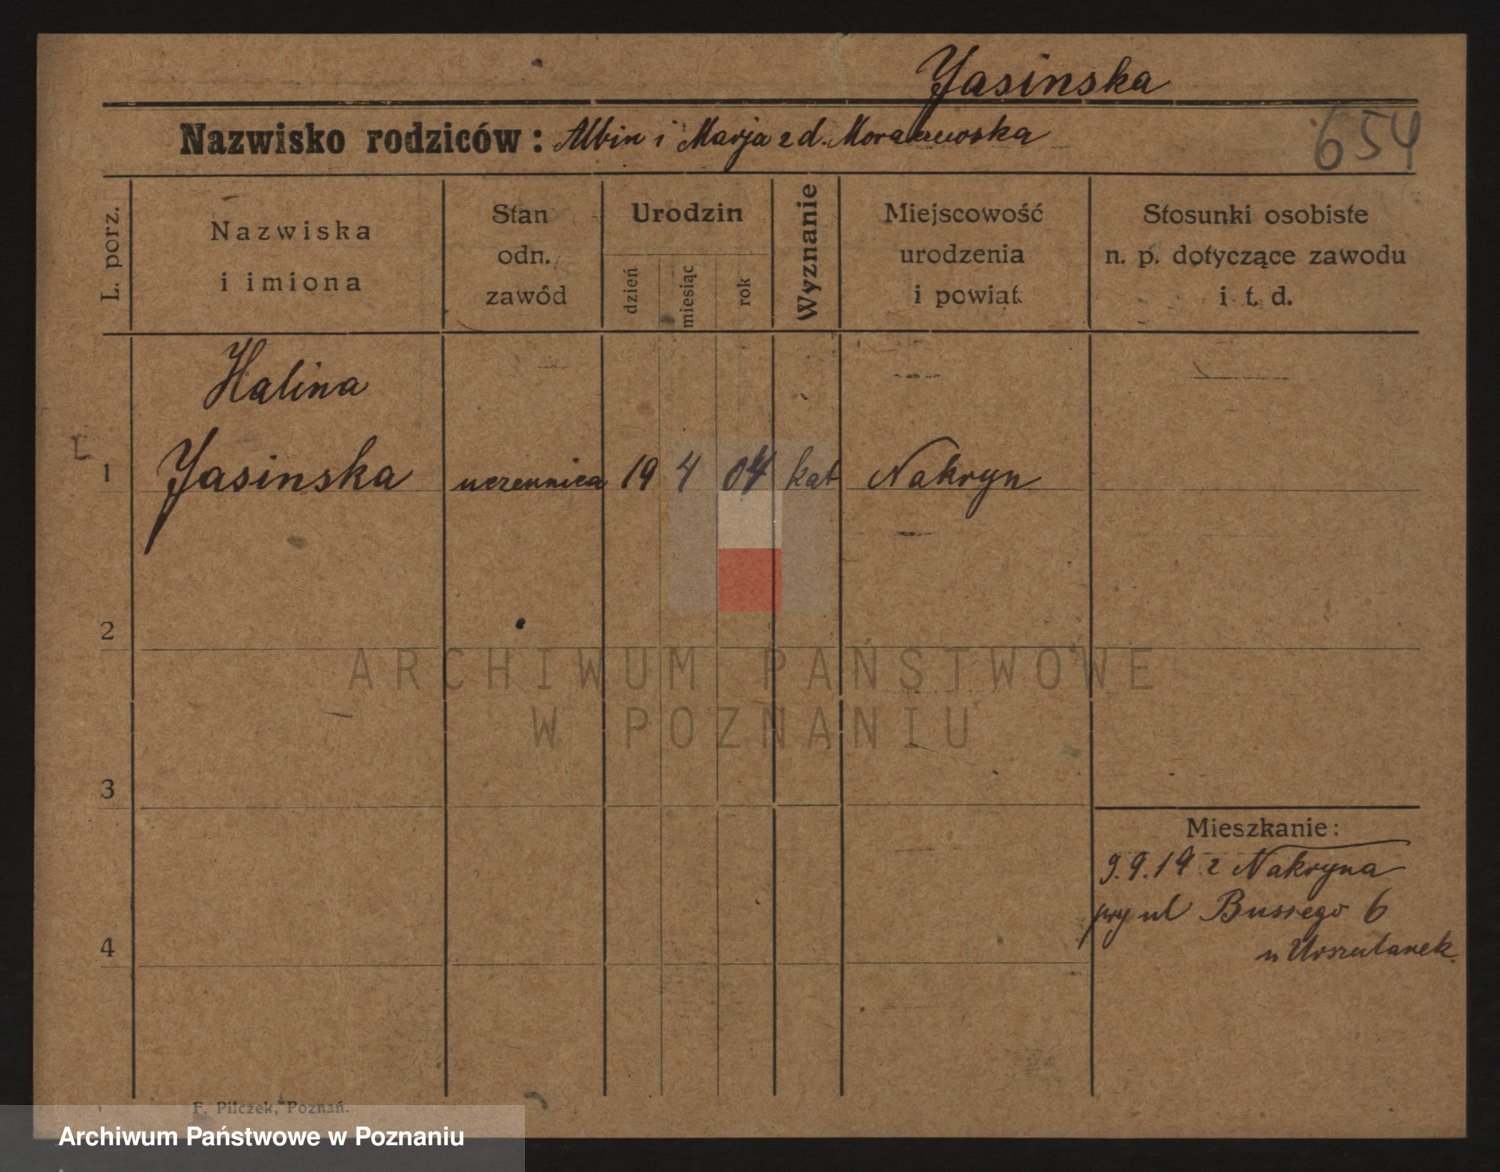 Jasinska
Nazwisko rodziców: Albin i Marja z d. Moraczewska
654
L. porz.
Nazwiska
i imiona
Stan
odn.
zawód
Urodzin
dzień
miesiąc
rok
Wyznanie
Miejscowość
urodzenia
i powiat
Stosunki osobiste
n. p. dotyczące zawodu
i t. d.
Halina
1 Jasinska uczennica 19 4 04 kat Nakryn
2
ARCHIWUM PAŃSTWOWE
W POZNANIU
3
Mieszkanie:
9.9.19 z Nakryna
przy ul Bussego 6
u Urszulanek.
4
F. Pilczek, Poznań.
Archiwum Państwowe w Poznaniu